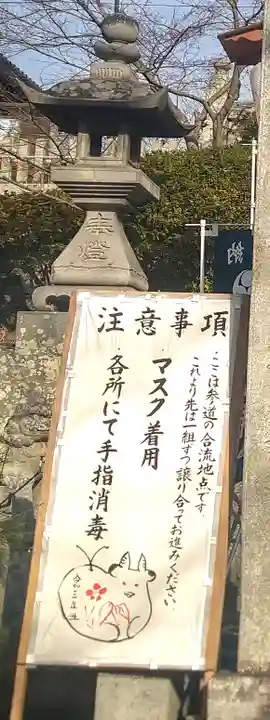 注意事項
ここは参道の合流地点です
これより先は一組ずつ譲り合ってお進みください.
マスク着用
各所にて手指消毒
令和三年丑
奉燈
納